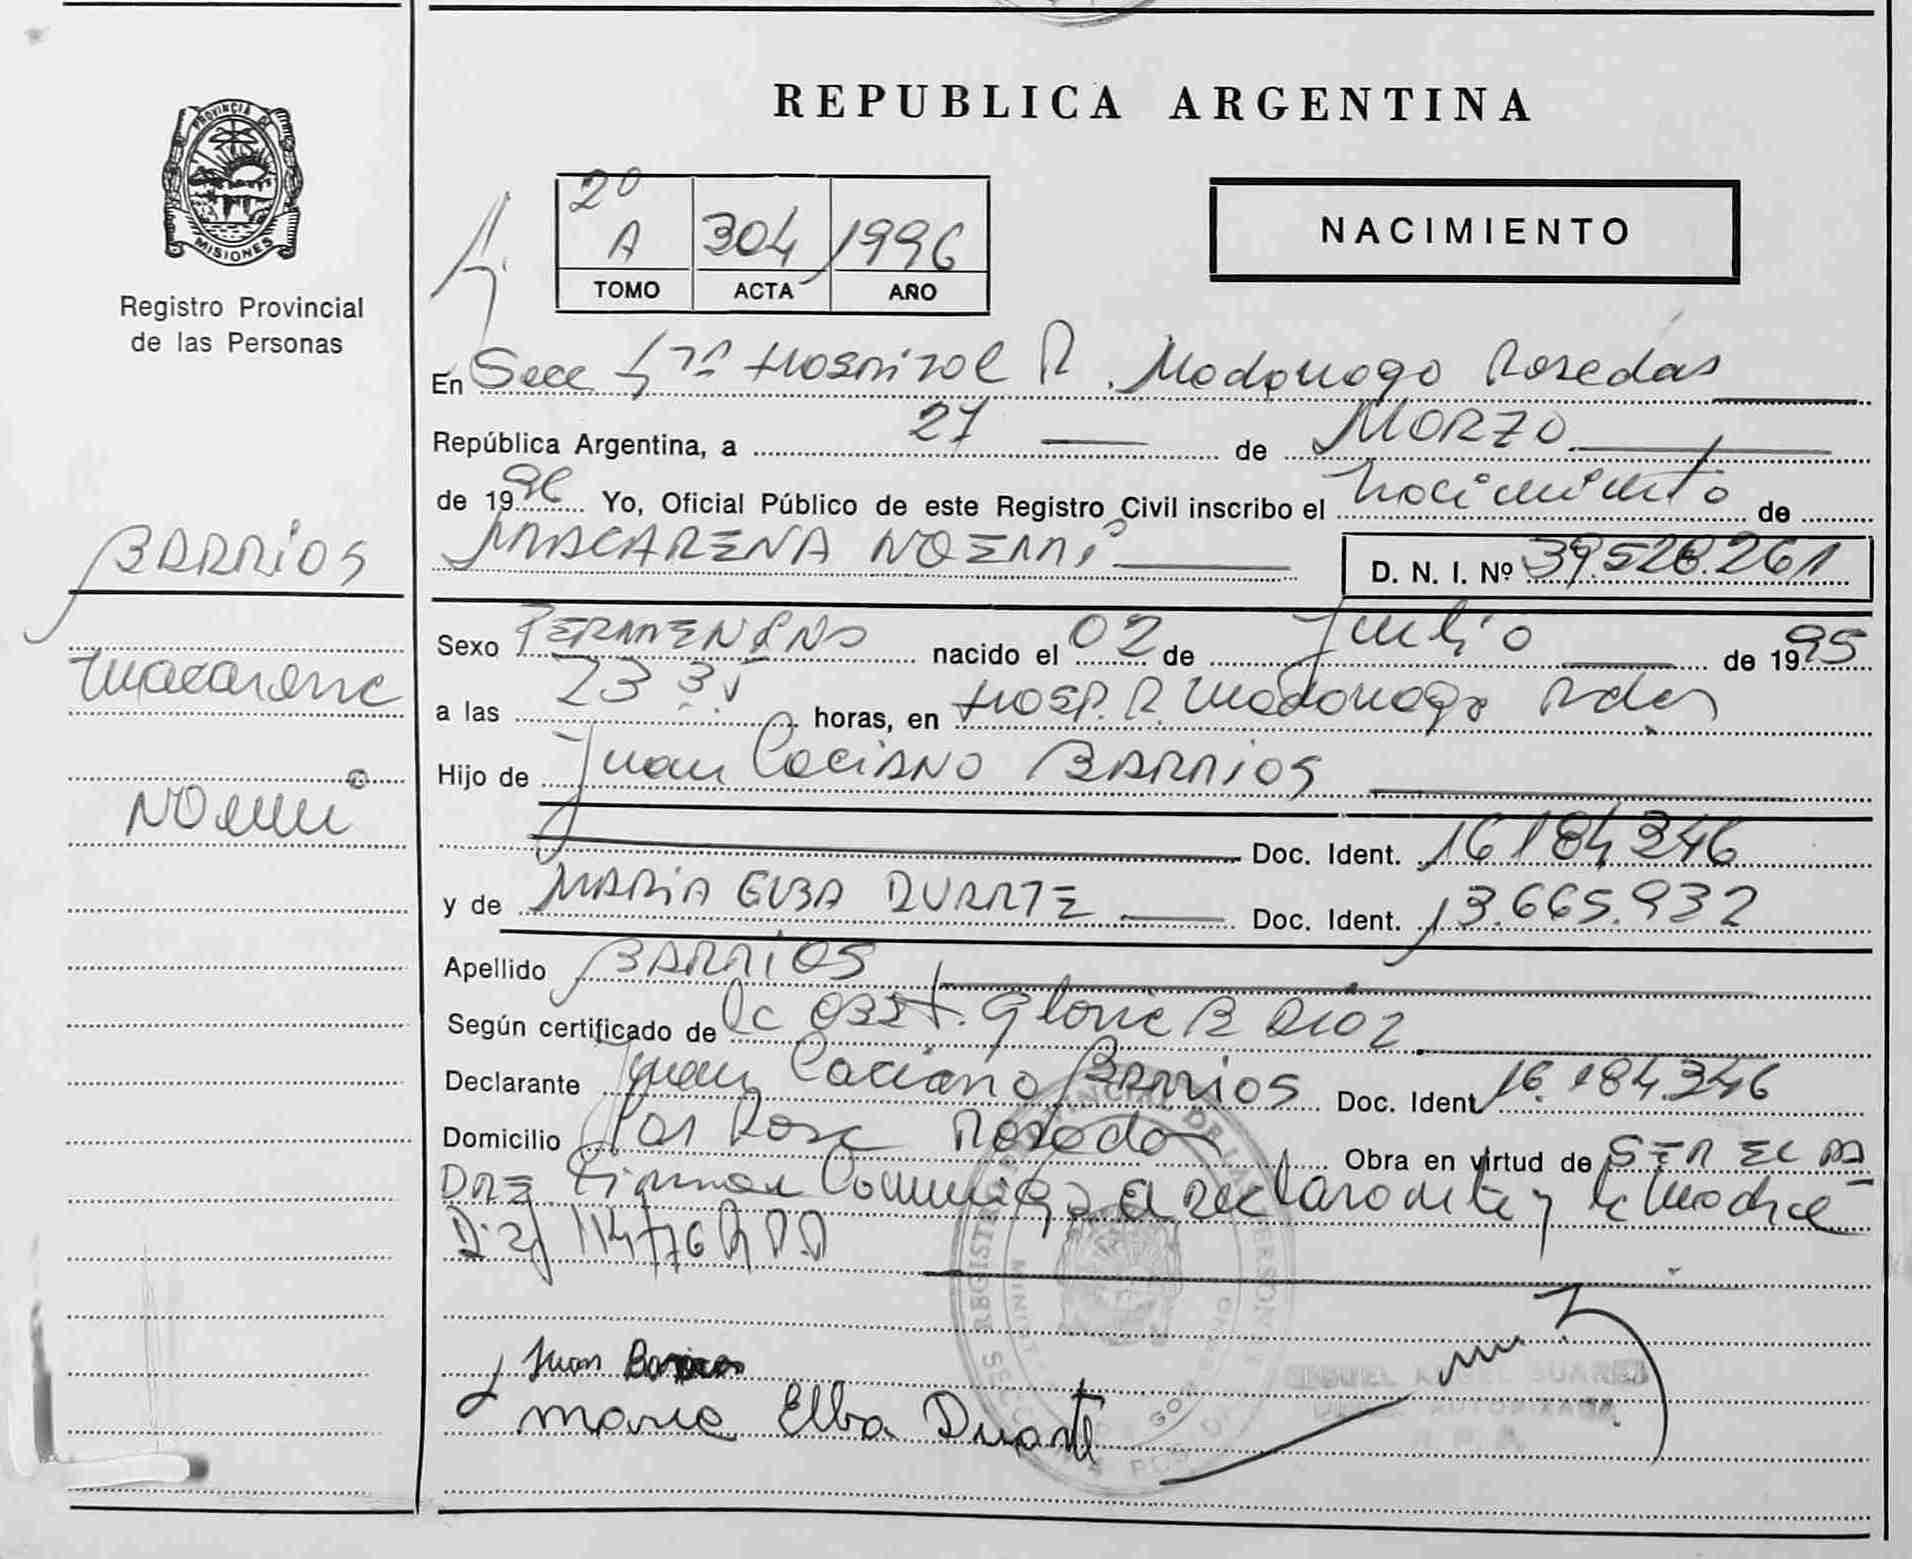 REPUBLICA ARGENTINA
PROVINCIA DE
MISIONES
Registro Provincial
de las Personas
2º
A 304 1996
TOMO ACTA AÑO
NACIMIENTO
En Secc Hospital R. Madariaga Posadas
República Argentina, a 27 de Marzo
de 1996 Yo, Oficial Público de este Registro Civil inscribo el nacimiento de
MACARENA NOEMÍ D. N. I. Nº 39.528.261
BARRIOS
Macarena
Noemi
Sexo FEMENINO nacido el 02 de Julio de 1995
a las 23 35 horas, en Hosp. R. Madariaga Pdas
Hijo de Juan Caciano BARRIOS
Doc. Ident. 16184346
y de MARIA ELBA DUARTE Doc. Ident. 13.665.932
Apellido BARRIOS
Según certificado de la Obst. Gloria B Diaz
Declarante Juan Caciano Barrios Doc. Ident 16.184.346
Domicilio Posadas Obra en virtud de SER EL PA
DRE Firman Conmigo El declarante y la Madre
Juan Barrios
Maria Elba Duarte
MIGUEL ANGEL SUAREZ
AUTORIZADA
R. P. P.